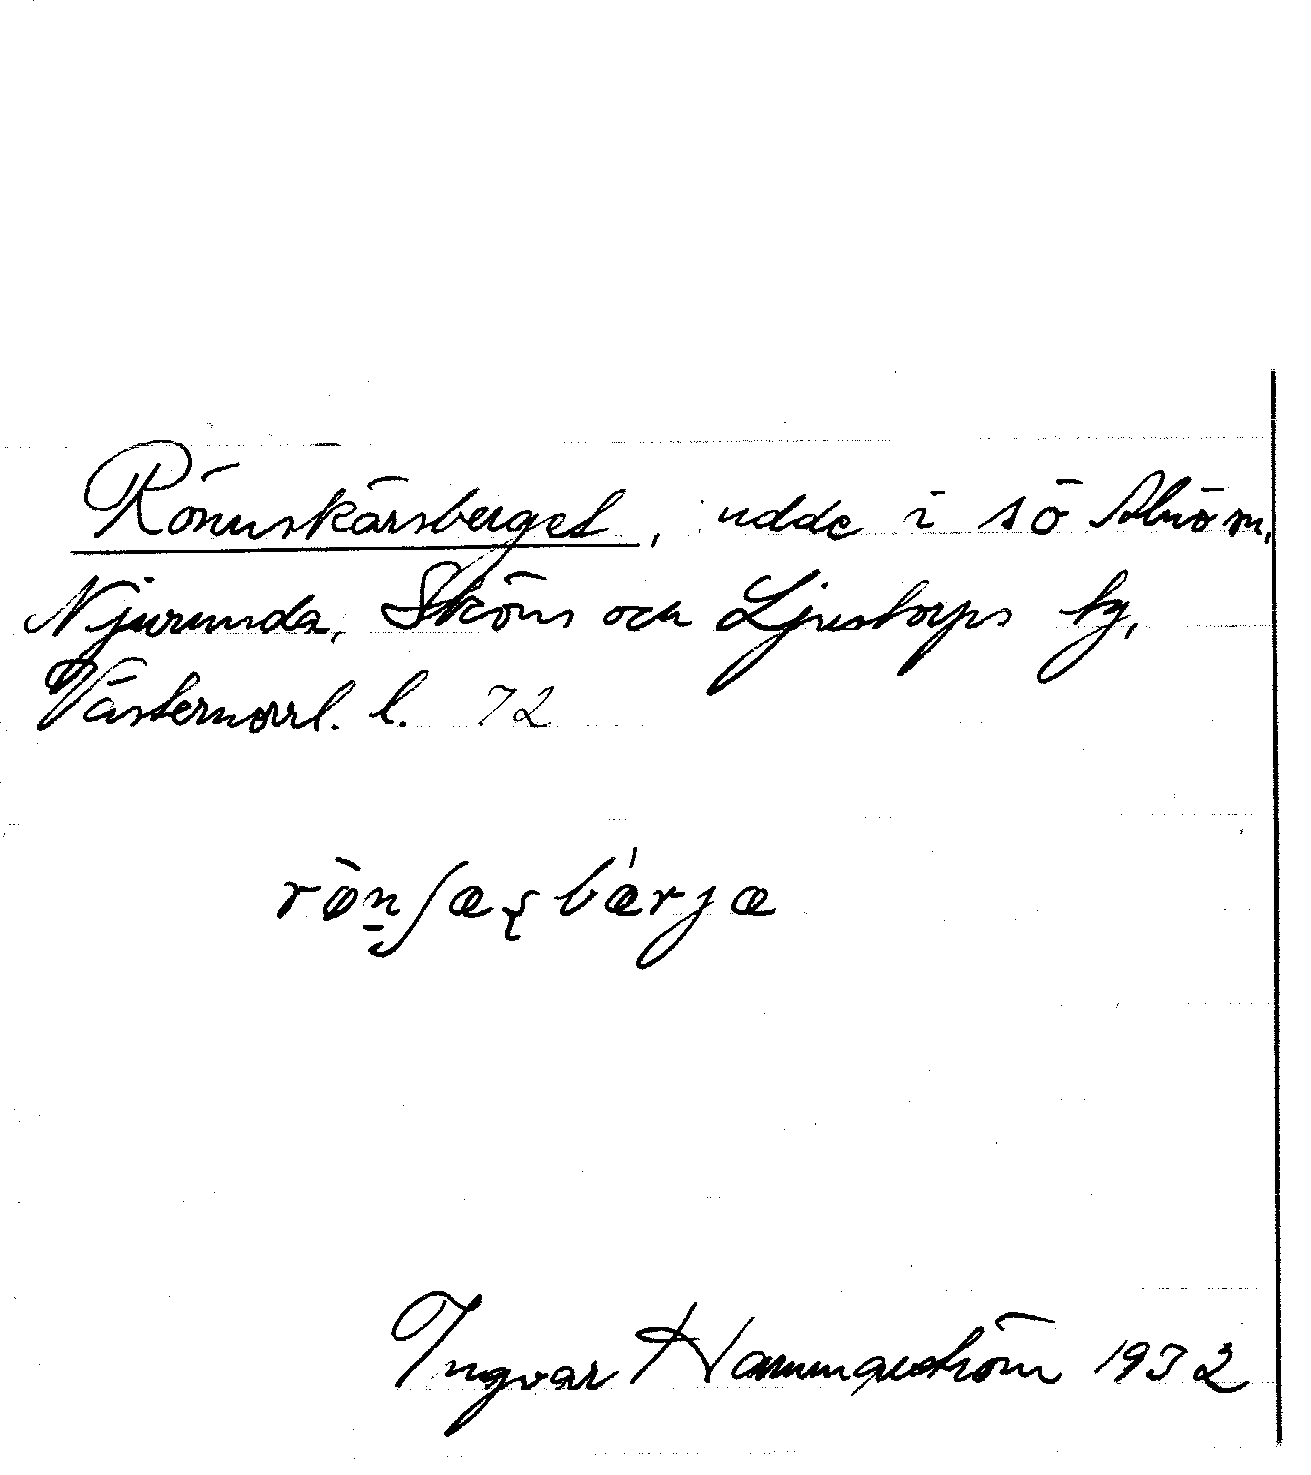 Rönnskärsberget, udde i sö Alnön,
Njurunda, Sköns och Ljustorps tg,
Västernorrl. l. 72
rö̀nʃæʂbǽrjæ
Ingvar Hammarström 1932